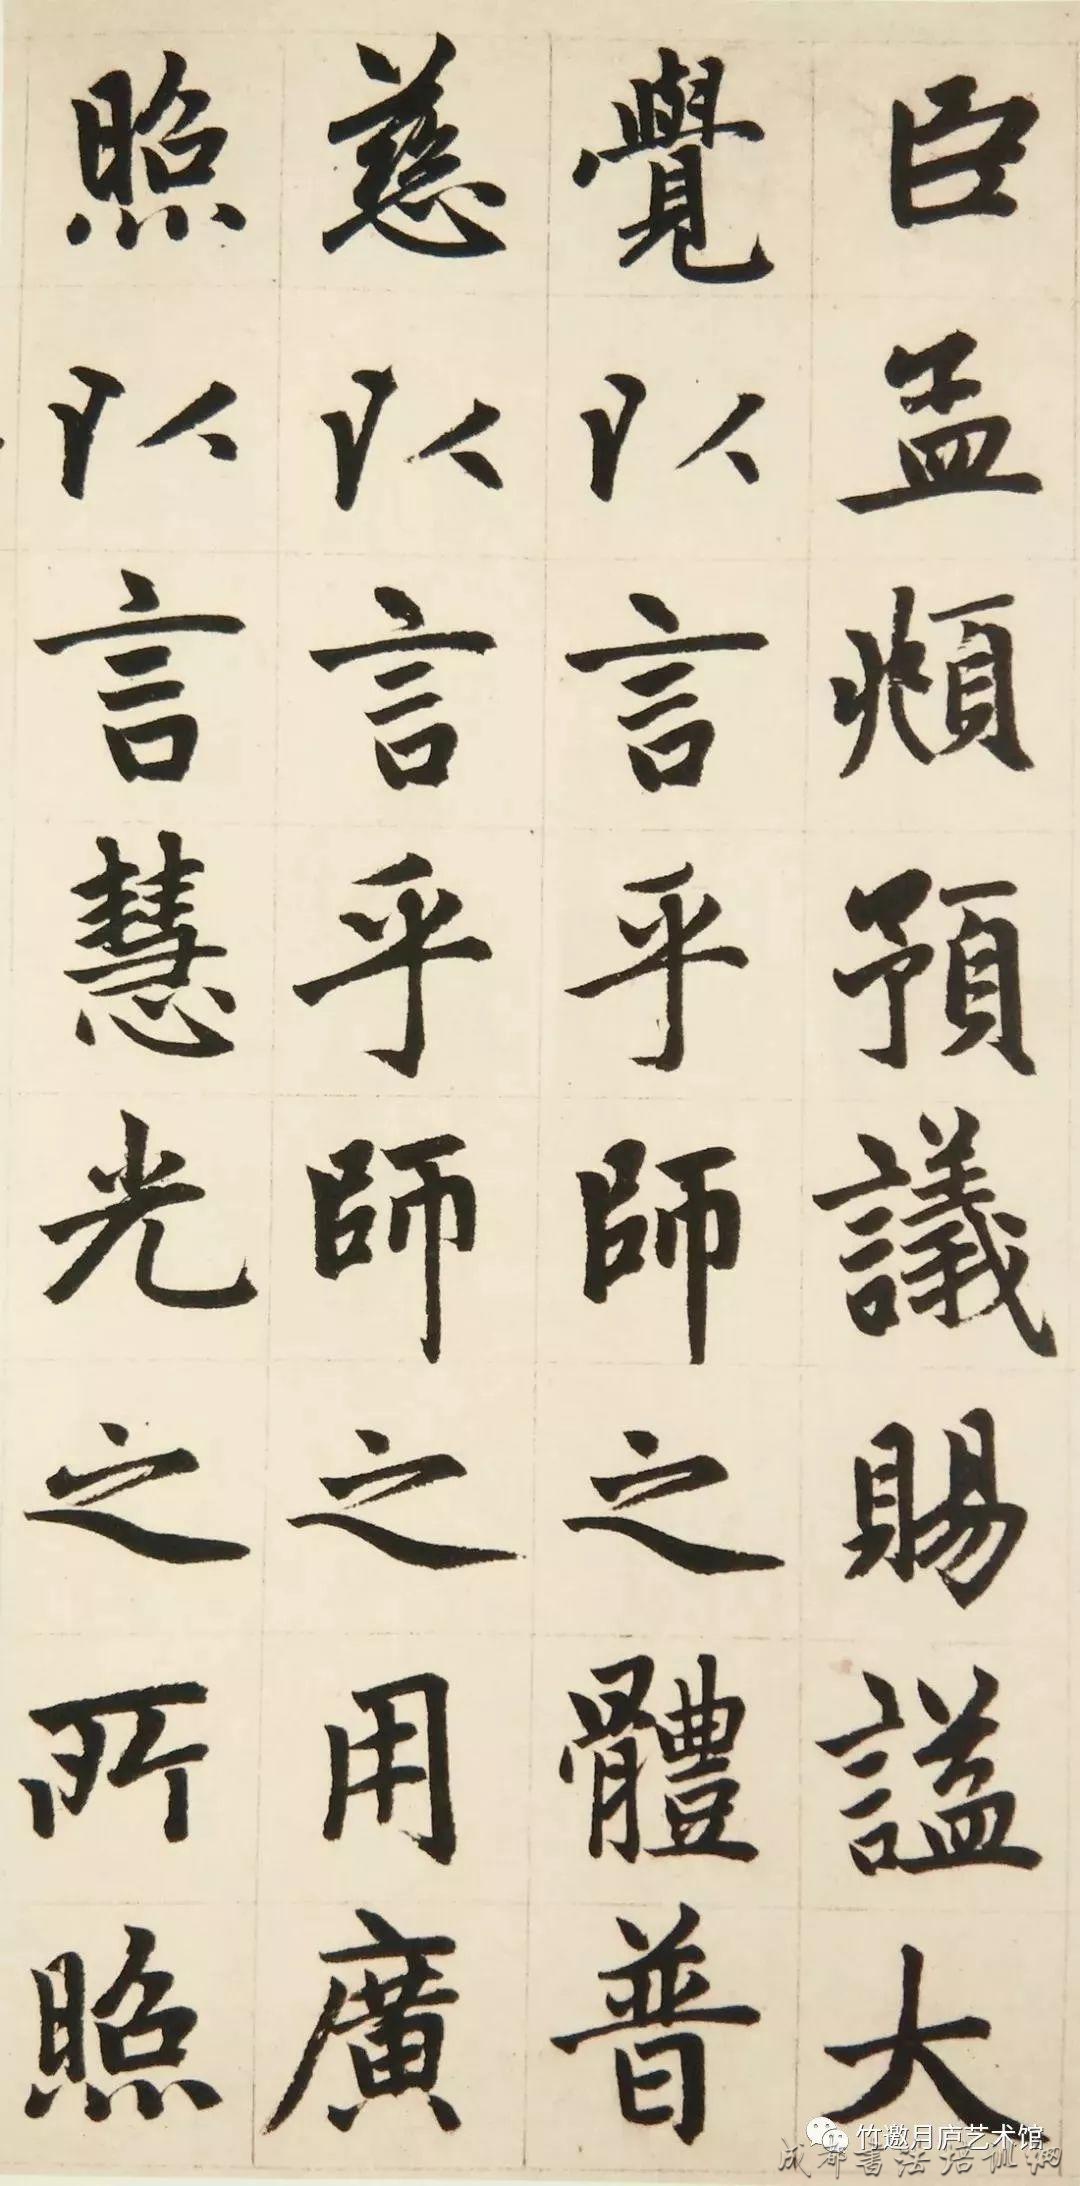 臣孟頫預議賜謚大
覺以言乎師之體普
慈以言乎師之用廣
照以言慧光之所照
竹邀月庐艺术馆
成都書法培训網